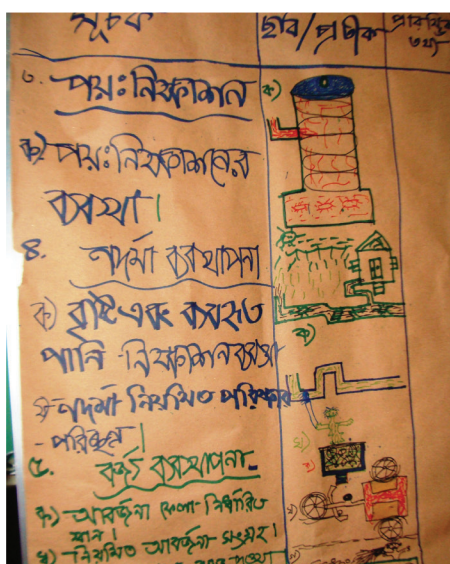 সূচক
ছবি/প্রতীক
৩. পয়ঃনিষ্কাশন
ক) পয়ঃনিষ্কাশনের
ব্যবস্থা।
৪. নর্দমা ব্যবস্থাপনা
ক) বৃষ্টি এবং ব্যবহৃত
পানি নিষ্কাশন ব্যবস্থা
খ নর্দমা নিয়মিত পরিষ্কার
- পরিচ্ছন্ন।
৫. বর্জ্য ব্যবস্থাপনা-
ক) আবর্জনা ফেলা নির্ধারিত
স্থান।
খ) নিয়মিত আবর্জনা সংগ্রহ।
ক)
ক)
ক)